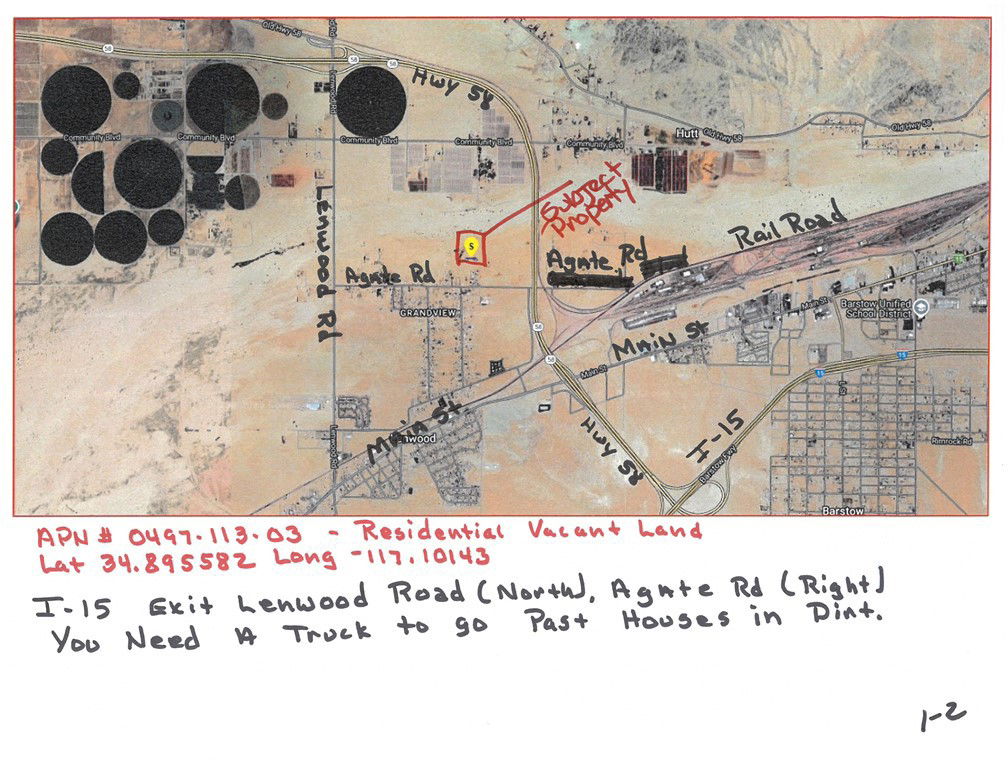 Old Hwy 58
58
58
58
Hwy 58
Lenwood Rd
Community Blvd
Community Blvd
Community Blvd
Community Blvd
Community Blvd
Hutt
Old Hwy 58
Old Hwy 58
Subject
Property
Lenwood Rd
S
Agate Rd
Agate Rd
Rail Road
GRANDVIEW
Main St
Barstow Unified
School District
58
Main St
58
Main St
15
15
Main St
Hwy 58
I-15
Barstow Fwy
Rimrock Rd
Lenwood Rd
Barstow
APN # 0497-113-03 - Residential Vacant Land
Lat 34.895582 Long -117.10143
I-15 Exit Lenwood Road (North), Agate Rd (Right)
You Need A Truck to go Past Houses in Dirt.
1-2